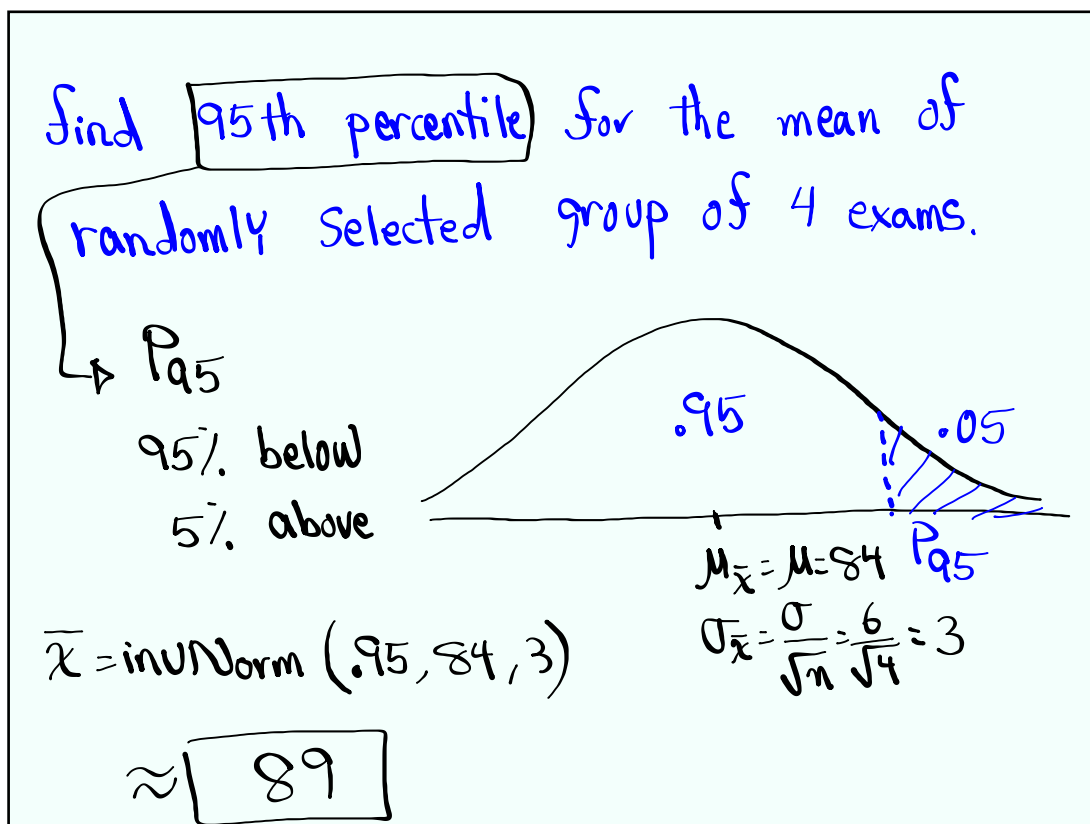 find 95th percentile for the mean of
randomly selected group of 4 exams.
P95
95% below
5% above
.95
.05
P95
μx̄ = μ = 84
σx̄ = σ/√n = 6/√4 = 3
x̄ = invNorm (.95, 84, 3)
≈ 89